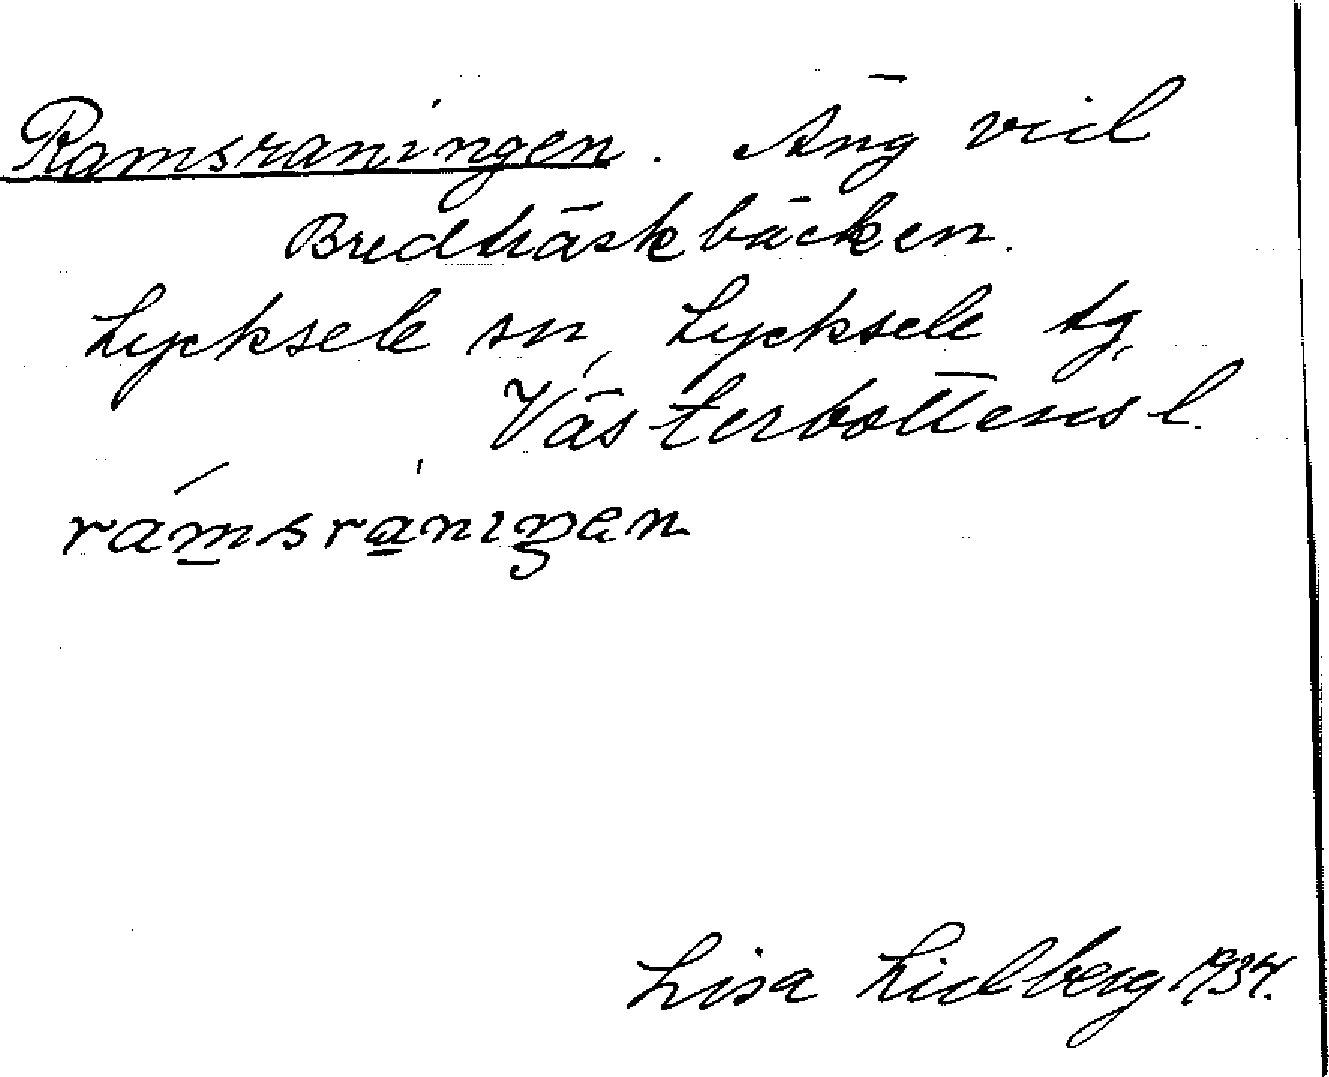 Ramsraningen. Äng vid
Bredträskbäcken.
Lycksele sn, Lycksele tg,
Västerbottens l.
rámsràniŋen
Lisa Lidberg 1934.